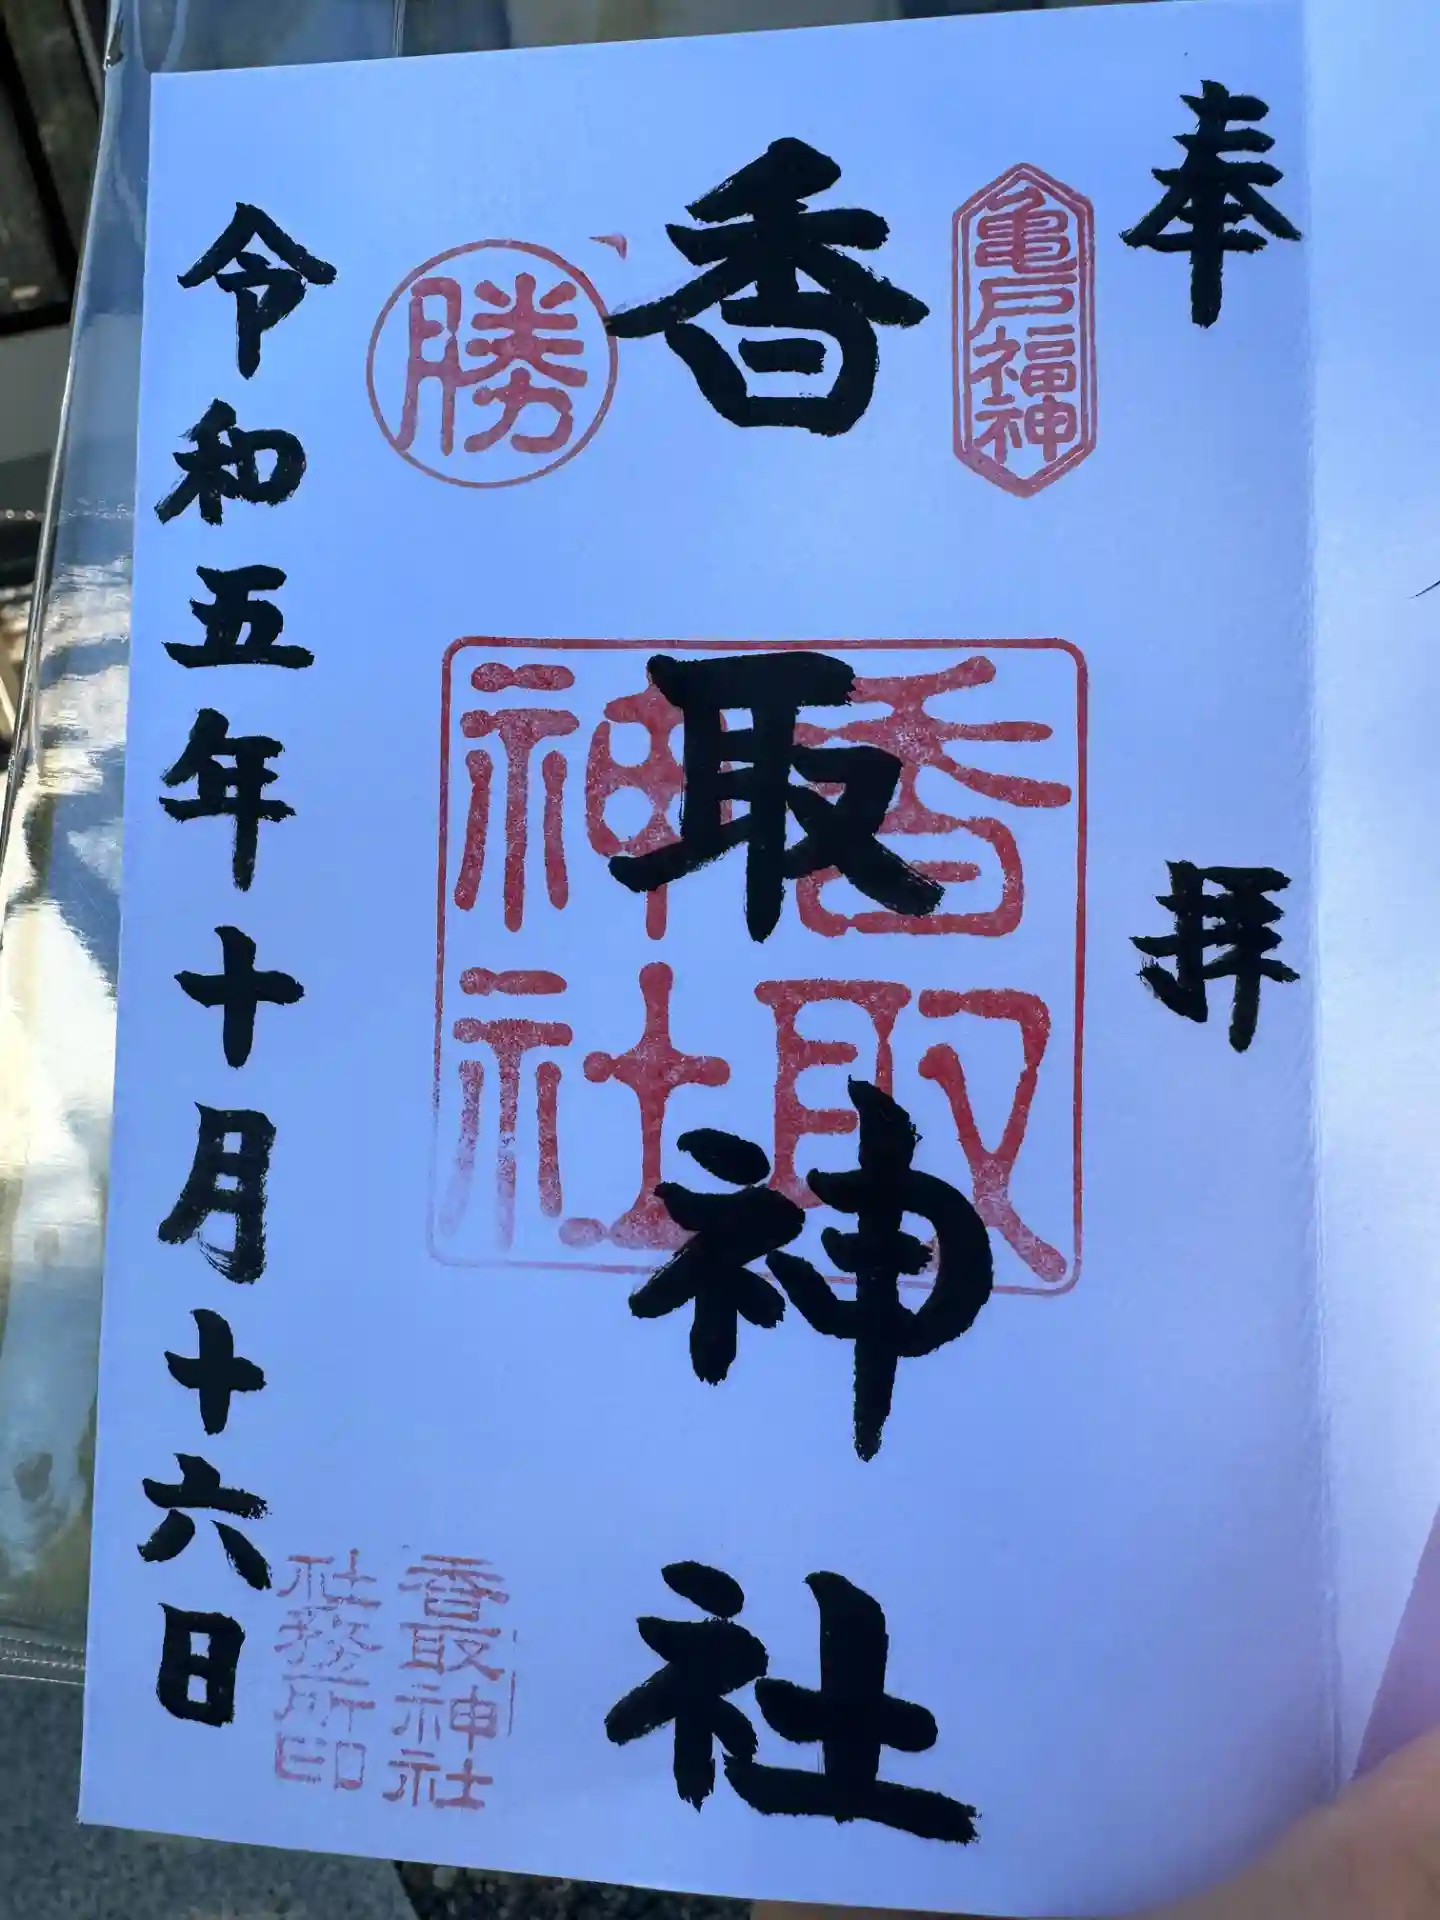 奉拝
亀戸福神
香取神社
香取
神社
勝
香取神社
社務所印
令和五年十月十六日